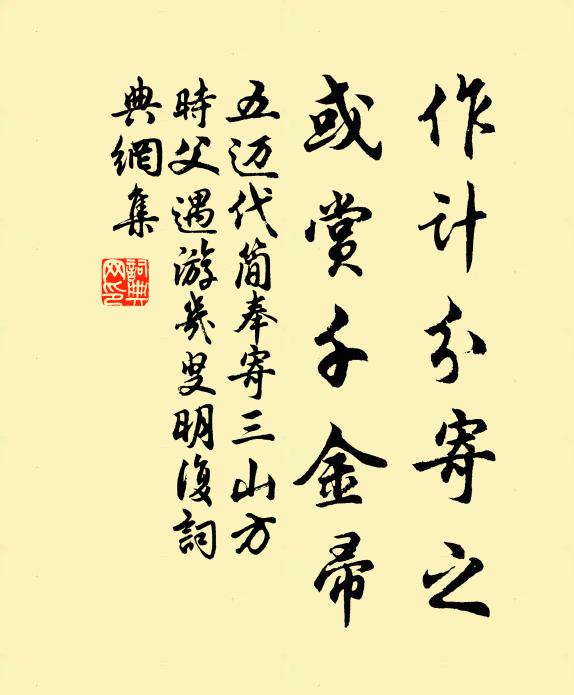 作计分寄之
或赏千金帚
五迈代简奉寄三山方
時父遇游岁叟明復詞
典網集
詞典網印